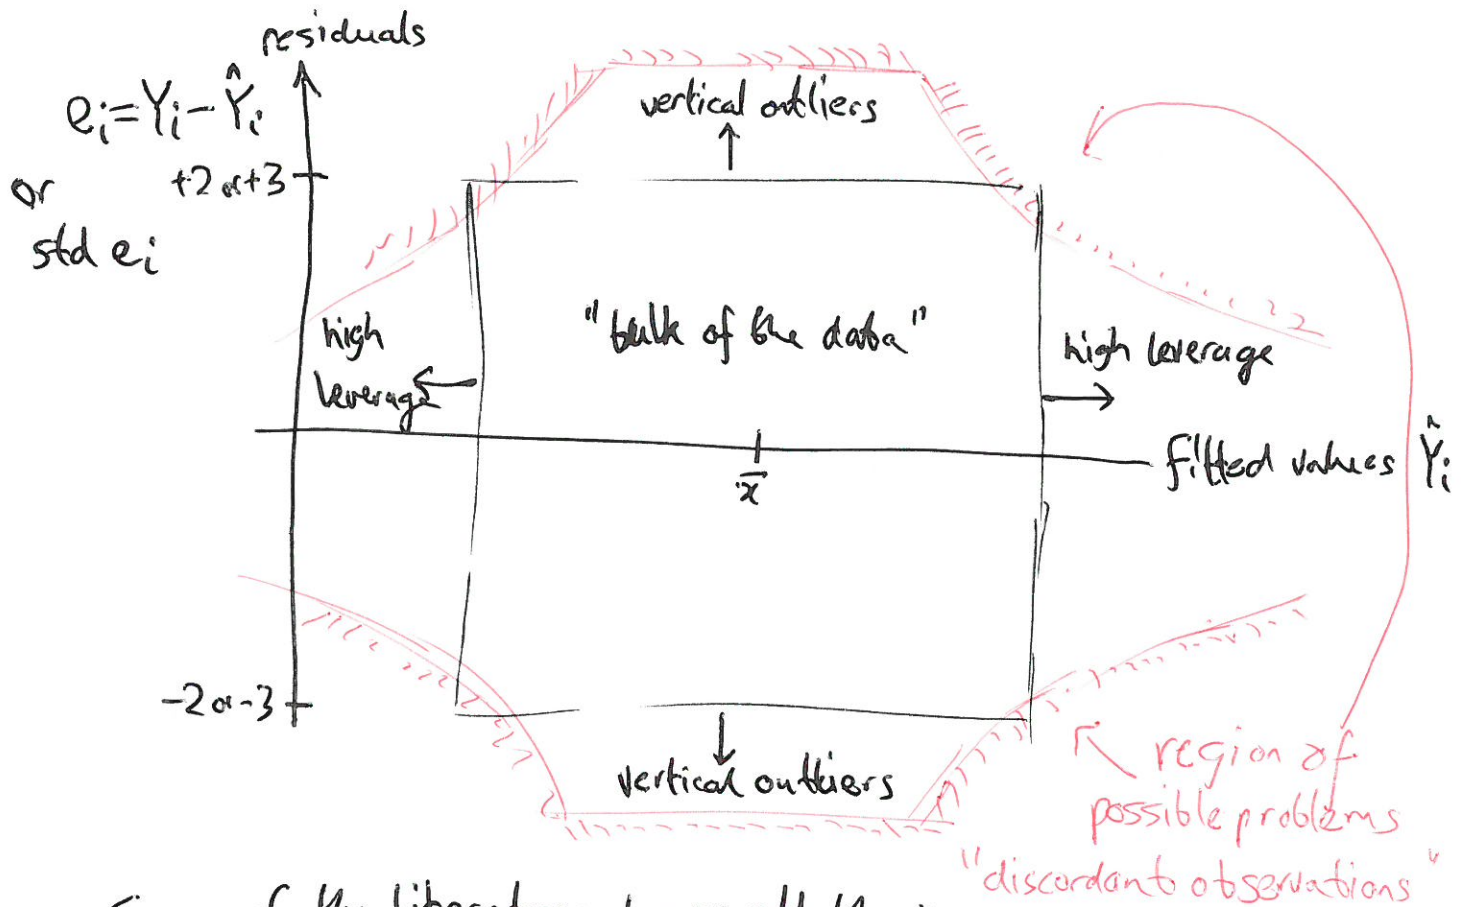 residuals
eᵢ=Yᵢ-Ŷᵢ
or
std eᵢ
+2 or +3
vertical outliers
high
leverage
"bulk of the data"
high leverage
x̄
fitted values Ŷᵢ
-2 or -3
vertical outliers
region of
possible problems
"discordant observations"